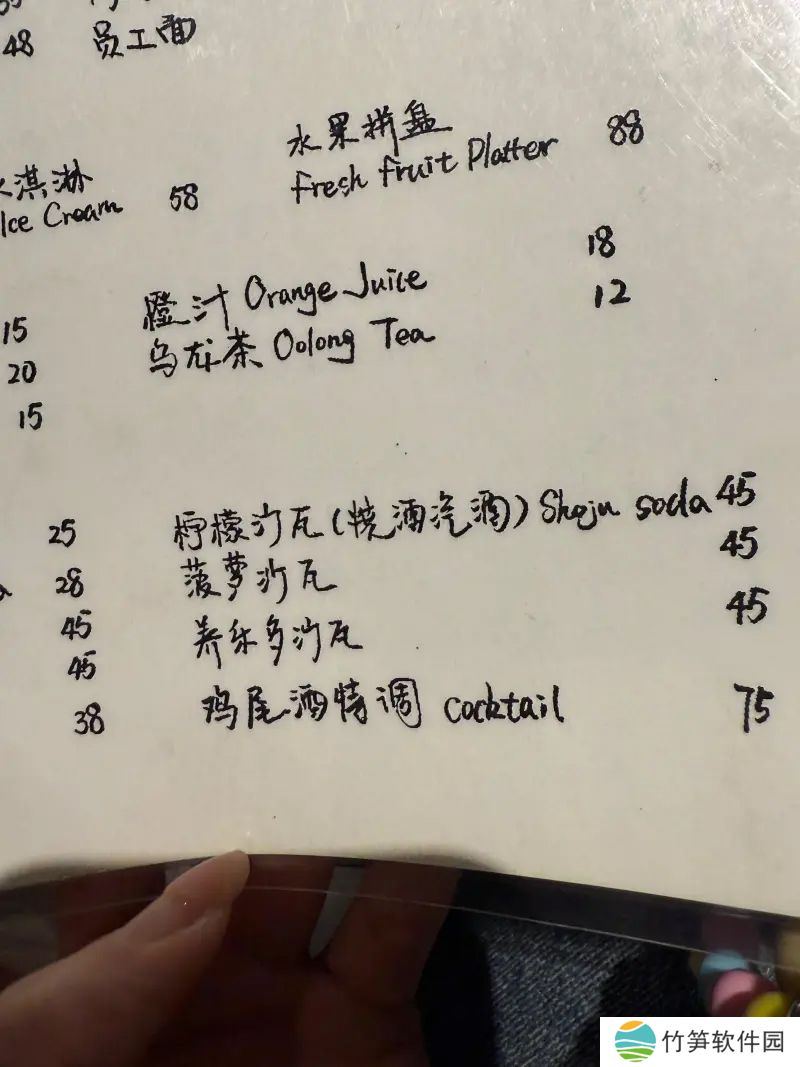 48 员工面
水果拼盘 88
Fresh fruit Platter
淇淋
Ice Cream 58
橙汁 Orange Juice 18
乌龙茶 Oolong Tea 12
15
20
15
25 柠檬沙瓦(烧酒汽酒) Shoju soda 45
28 菠萝沙瓦 45
45 养乐多沙瓦 45
45
38 鸡尾酒特调 cocktail 75
竹笋软件园